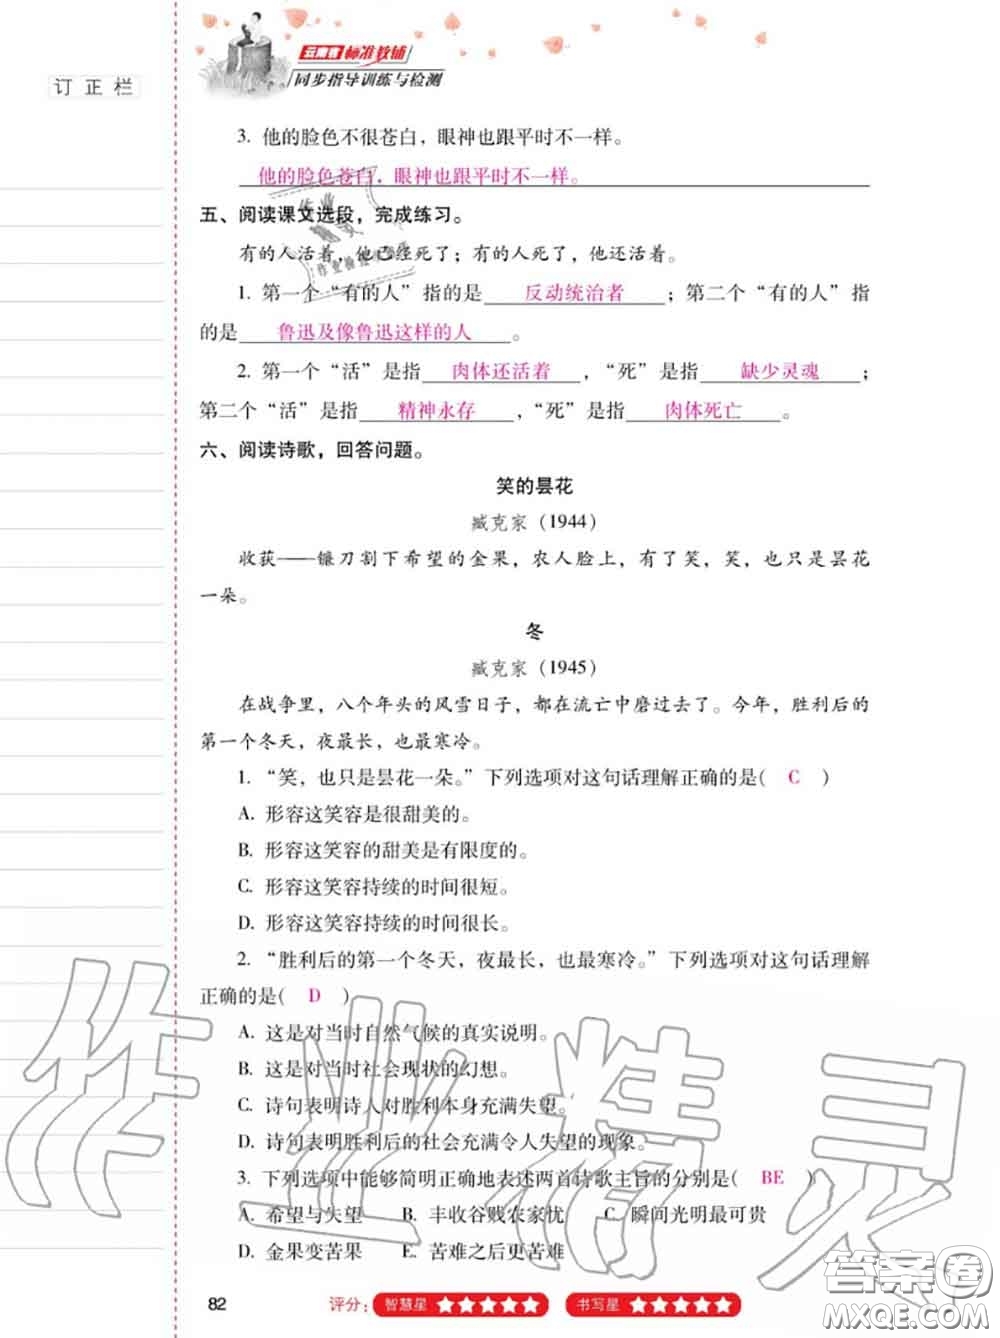 云南省标准教辅
同步指导训练与检测
订正栏
3. 他的脸色不很苍白，眼神也跟平时不一样。
他的脸色苍白，眼神也跟平时不一样。
五、阅读课文选段，完成练习。
有的人活着，他已经死了；有的人死了，他还活着。
1. 第一个“有的人”指的是 反动统治者 ；第二个“有的人”指
的是 鲁迅及像鲁迅这样的人 。
2. 第一个“活”是指 肉体还活着 ，“死”是指 缺少灵魂 ；
第二个“活”是指 精神永存 ，“死”是指 肉体死亡 。
六、阅读诗歌，回答问题。
笑的昙花
臧克家（1944）
收获——镰刀割下希望的金果，农人脸上，有了笑，笑，也只是昙花
一朵。
冬
臧克家（1945）
在战争里，八个年头的风雪日子，都在流亡中磨过去了。今年，胜利后的
第一个冬天，夜最长，也最寒冷。
1. “笑，也只是昙花一朵。”下列选项对这句话理解正确的是( C )
A. 形容这笑容是很甜美的。
B. 形容这笑容的甜美是有限度的。
C. 形容这笑容持续的时间很短。
D. 形容这笑容持续的时间很长。
2. “胜利后的第一个冬天，夜最长，也最寒冷。”下列选项对这句话理解
正确的是( D )
A. 这是对当时自然气候的真实说明。
B. 这是对当时社会现状的幻想。
C. 诗句表明诗人对胜利本身充满失望。
D. 诗句表明胜利后的社会充满令人失望的现象。
3. 下列选项中能够简明正确地表述两首诗歌主旨的分别是( BE )
A. 希望与失望 B. 丰收谷贱农家忧 C. 瞬间光明最可贵
D. 金果变苦果 E. 苦难之后更苦难
82 评分： 智慧星 ★★★★★ 书写星 ★★★★★
作业精灵
答案圈
MXQE.COM